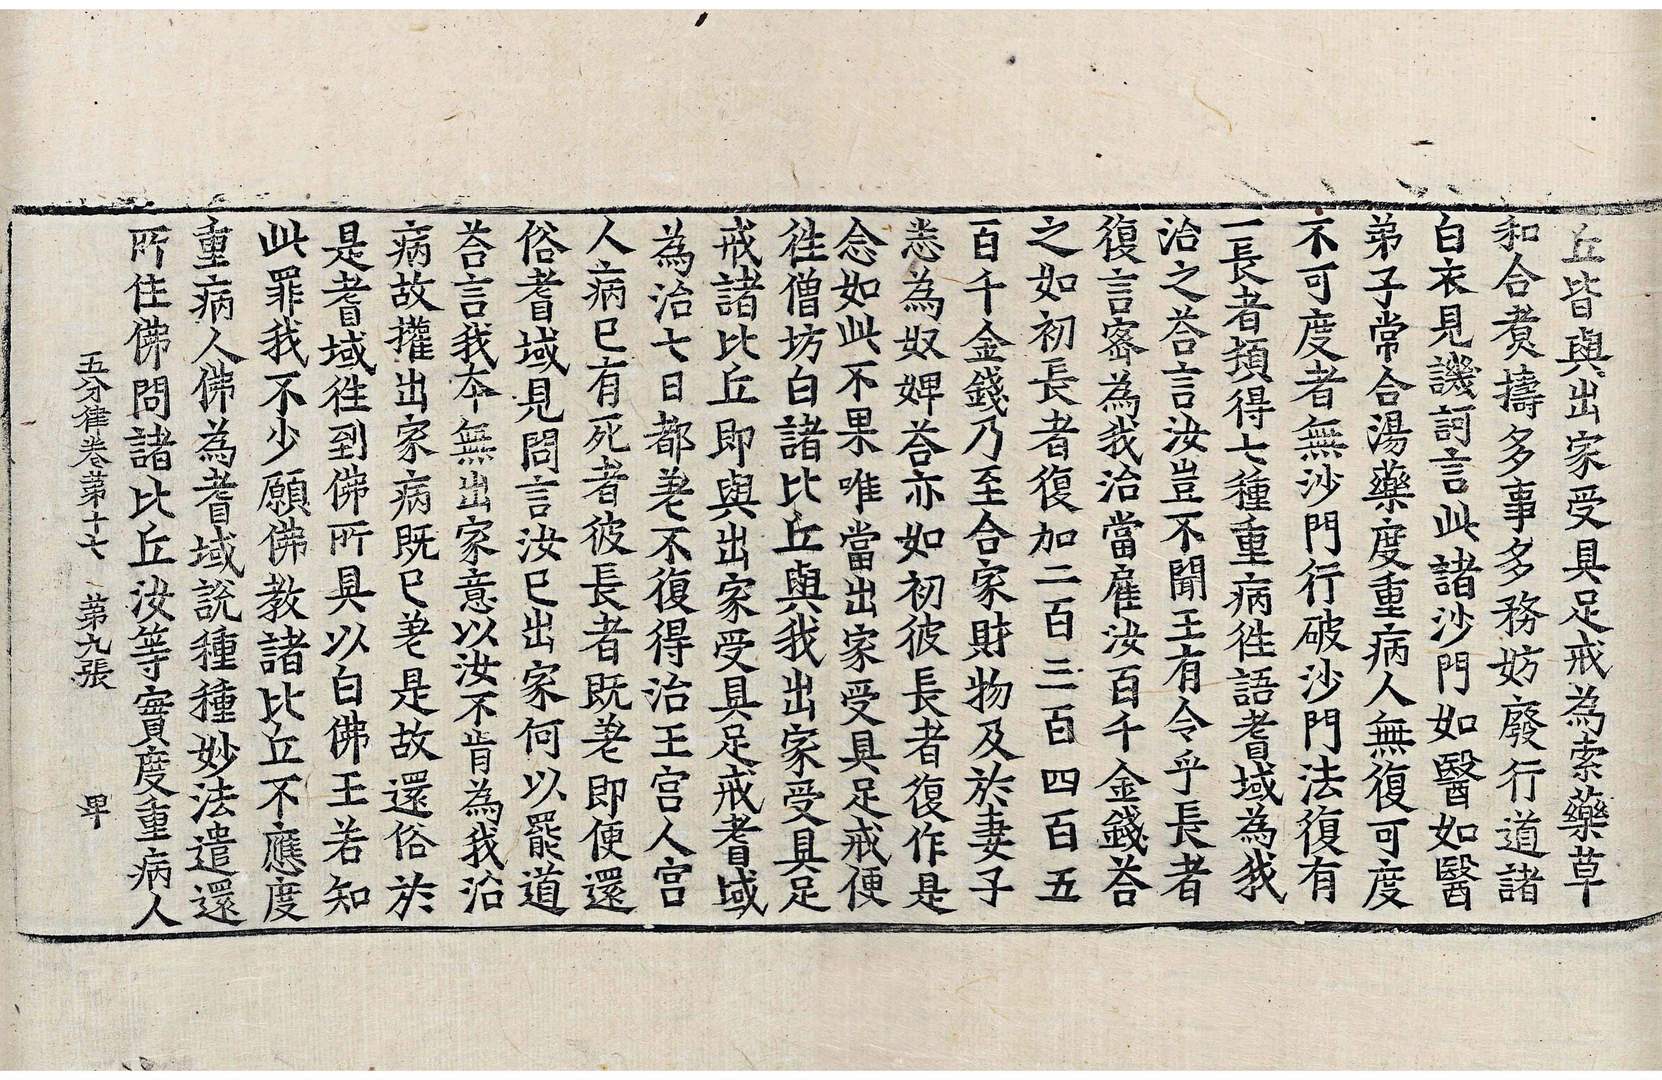 丘皆與出家受具足戒為索藥草
和合煑擣多事多務妨廢行道諸
白衣見譏訶言此諸沙門如醫如醫
弟子常合湯藥度重病人無復可度
不可度者無沙門行破沙門法復有
一長者頻得七種重病徃語耆域為我
治之荅言汝豈不聞王有令乎長者
復言密為我治當雇汝百千金錢荅
之如初長者復加二百三百四百五
百千金錢乃至合家財物及於妻子
悉為奴婢荅亦如初彼長者復作是
念如此不果唯當出家受具足戒便
徃僧坊白諸比丘與我出家受具足
戒諸比丘即與出家受具足戒耆域
為治七日都差不復得治王宮人宮
人病已有死者彼長者既差即便還
俗耆域見問言汝已出家何以罷道
荅言我本無出家意以汝不肯為我治
病故權出家病既已差是故還俗於
是耆域徃到佛所具以白佛王若知
此罪我不少願佛教諸比丘不應度
重病人佛為耆域說種種妙法遣還
所住佛問諸比丘汝等實度重病人
五分律卷第十七 第九張 卑